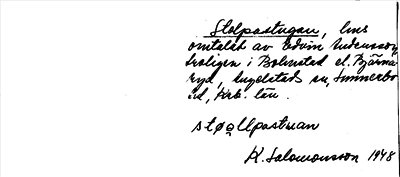 Stolpastugan, hus
omtalat av Edvin Andersson,
troligen i Bolmstad el. Bjärna
ryd, Angelstads sn, Sunnerbo
hd, Krb. län.
støɷllpastuan
K. Salomonsson 1948